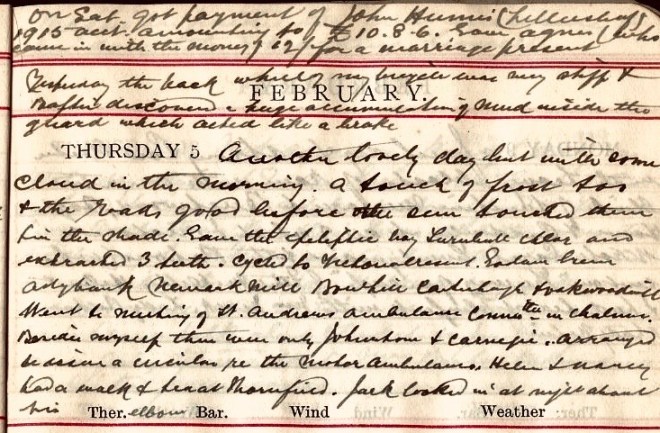 On Sat. got payment of John Hunni
1915 acct. amounting to £10.8.6. Gave Agnes (who
came in with the money) £2/- for a marriage present
Yesterday the back wheel of my bicycle was very stiff &
discovered a huge accumulation of mud inside the
FEBRUARY
guard which acted like a brake
THURSDAY 5 Another lovely day but with some
cloud in the morning. A touch of frost too
& the roads good before the sun touched them
& in the shade. Saw the epileptic boy Turnbull and
extracted 3 teeth. Cycled to
Newark Mill Bowhill
Went to meeting of St. Andrews Ambulance Comm'ttee in Chalmers.
Besides myself there were only Johnstone & Carnegie. Arranged
to issue a circular re the Motor Ambulance. Helen & Nancy
had a walk & tea at Thornfield. Jack looked in at night about
his
Ther. elbow Bar. Wind Weather